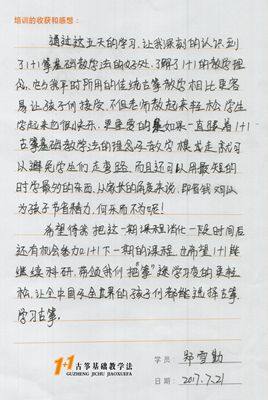 培训的收获和感想：
通过这五天的学习，让我深刻的认识到
了1+1古筝基础教学法的好处，了解了1+1的教学理
念，也与我平时所用的传统古筝教学相比更容
易让孩子们接受，不但老师教起来轻松，学生
学起来也很快乐，更重要的是如果一直跟着1+1
古筝基础教学法的理念教学模式走就可
以避免学生们走弯路，而且还可以用最短的
时学最多的东西，从家长的角度来说，即省钱，
为孩子节省精力，何乐而不为呢！
希望待我把这一期课程消化一段时间后
还有机会参加1+1下一期的课程，也希望1+1能
继续科研，带领我们把"筝"课学习的更轻
松，让全中国及全世界的孩子们都能选择古筝，
学习古筝。
1+1古筝基础教学法
GUZHENG JICHU JIAOXUEFA
学员：郑雪勤
日期：2017.7.21